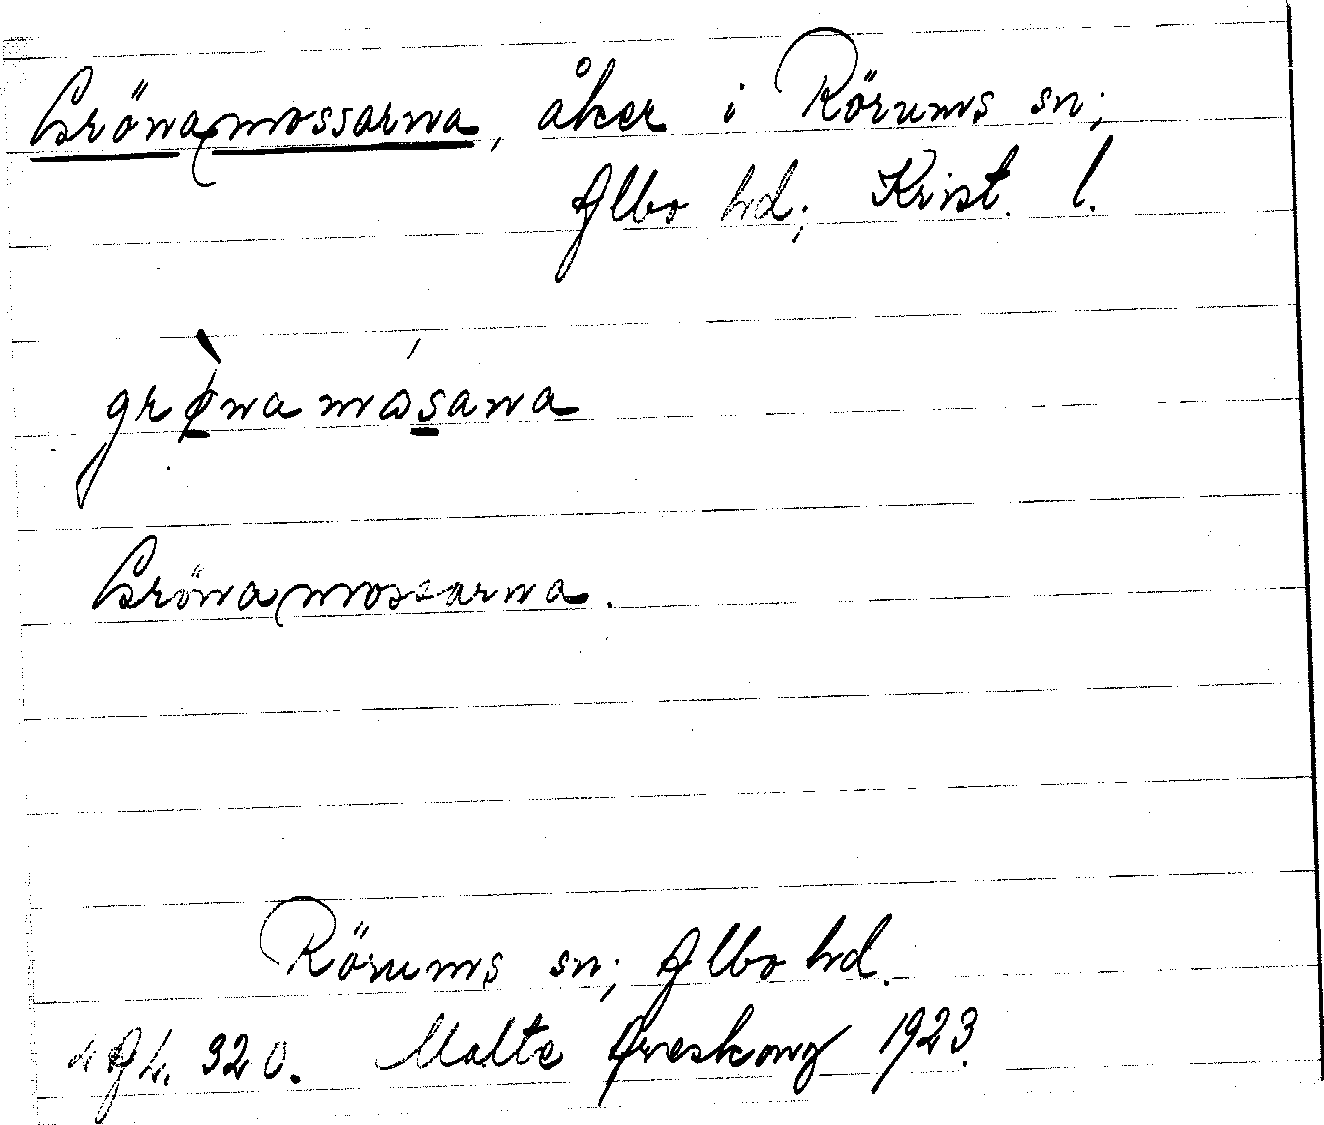 Gröna mossarna, åker i Rörums sn;
Albo hd; Krist. l.
grø̀na mósana
Gröna mossarna.
Rörums sn; Albo hd.
320. Malte Areskoug 1923.